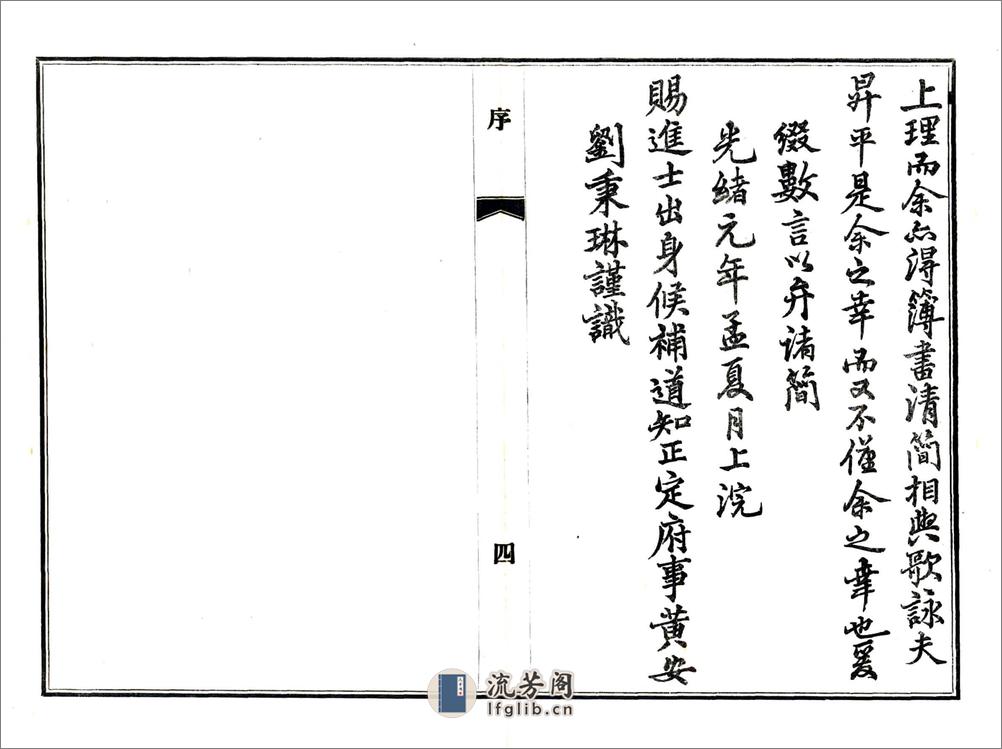 上理而余亦得簿書清簡相與歌詠夫
昇平是余之幸而又不僅余之幸也爰
綴數言以弁諸簡
光緒元年孟夏月上浣
賜進士出身候補道知正定府事黃安
劉秉琳謹識
序
四
流芳阁
lfglib.cn